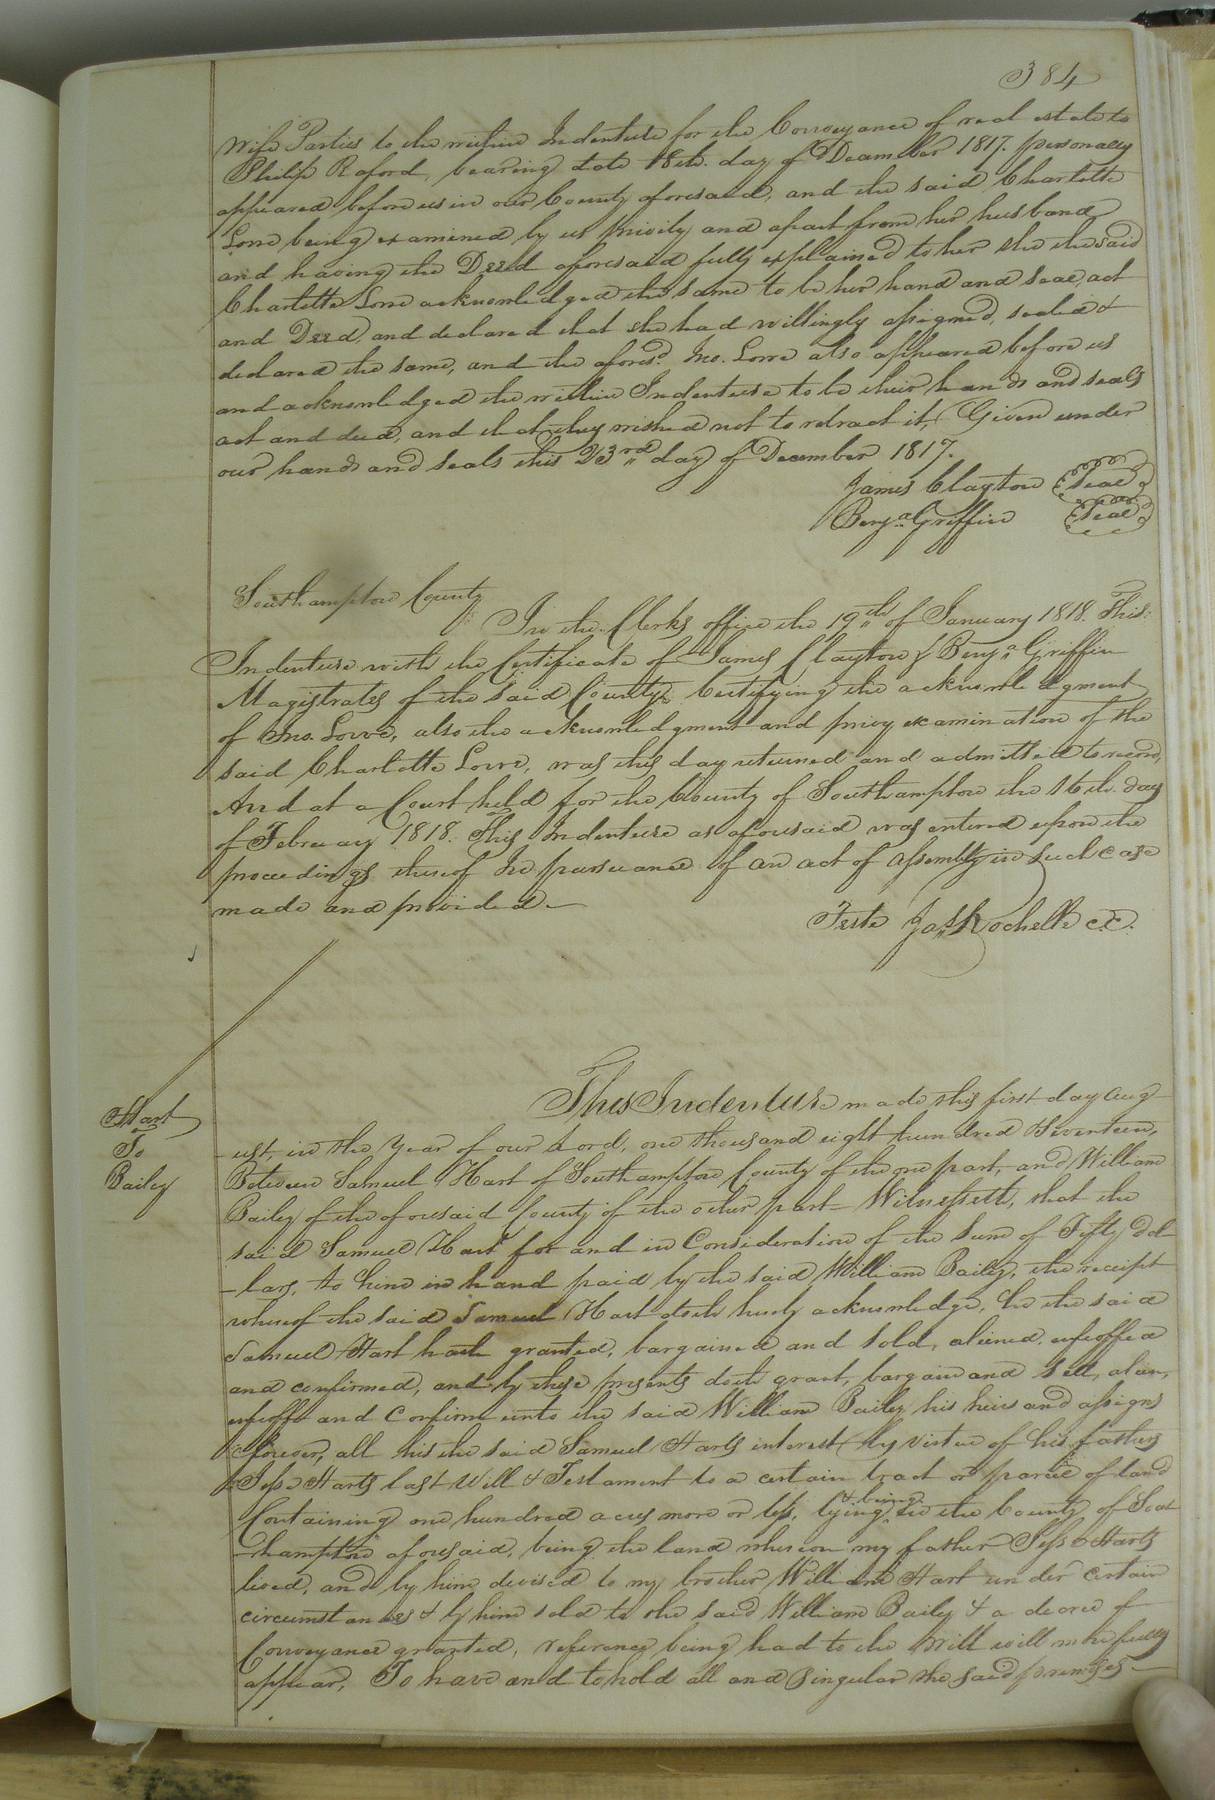 384
Wife Parties to the within Indenture for the Conveyance of real estate to
Philip Raford, bearing date 18th. day of December 1817. personally
appeared before us in our County aforesaid, and the said Charlotte
Lowe being examined by us privily and apart from her husband
and having the Deed aforesaid fully explained to her she the said
Charlotte Lowe acknowledged the same to be her hand and seal, act
and Deed, and declared that she had willingly assigned, sealed &
declared the same, and the aforesd. Jno. Lowe also appeared before us
and acknowledged the within Indenture to be their hands and seals
act and deed, and that they wished not to retract it, Given under
our hands and seals this 23rd day of December 1817.
James Clayton Seal
Benja. Griffin Seal
Southampton County
In the Clerks office the 19th of January 1818. This
Indenture with the Certificate of James Clayton & Benja. Griffin
Magistrates of the said County, Certifying the acknowledgment
of Jno. Lowe, also the acknowledgment and privy examination of the
said Charlotte Lowe, was this day returned and admitted to record,
And at a Court held for the County of Southampton the 16th. day
of February 1818. This Indenture as aforesaid was entered upon the
proceedings thereof In pursuance of an act of assembly in such case
made and provided.
Teste Jas. Rochelle c.c.
Hart
To
Bailey
This Indenture made this first day Aug-
-ust, in the Year of our Lord, one thousand eight hundred & seventeen,
Between Samuel Hart of Southampton County of the one part, and William
Bailey of the aforesaid County of the other part Witnesseth, that the
said Samuel Hart for and in Consideration of the Sum of Fifty Dol-
-lars, to him in hand paid by the said William Bailey, the receipt
whereof the said Samuel Hart doth hereby acknowledge, he the said
Samuel Hart hath granted, bargained and sold, aliened, enfeoffed
and confirmed, and by these presents doth grant, bargain and sell, alien,
enfeoff and Confirm unto the said William Bailey his heirs and assigns
forever, all his the said Samuel Harts interest (by virtue of his fathers
Jesse Harts last Will & Testament to a certain tract or parcel of land
Containing one hundred acres more or less, lying & being in the County of Sout
-hampton aforesaid, being the land whereon my father Jesse Harts
lived, and by him devised to my brother William Hart under certain
circumstances & by him sold to the said William Bailey & a decree of
Conveyance granted, reference being had to the Will will more fully
appear, To have and to hold all and singular the said premises